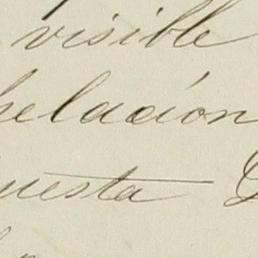 visible
helación
uesta